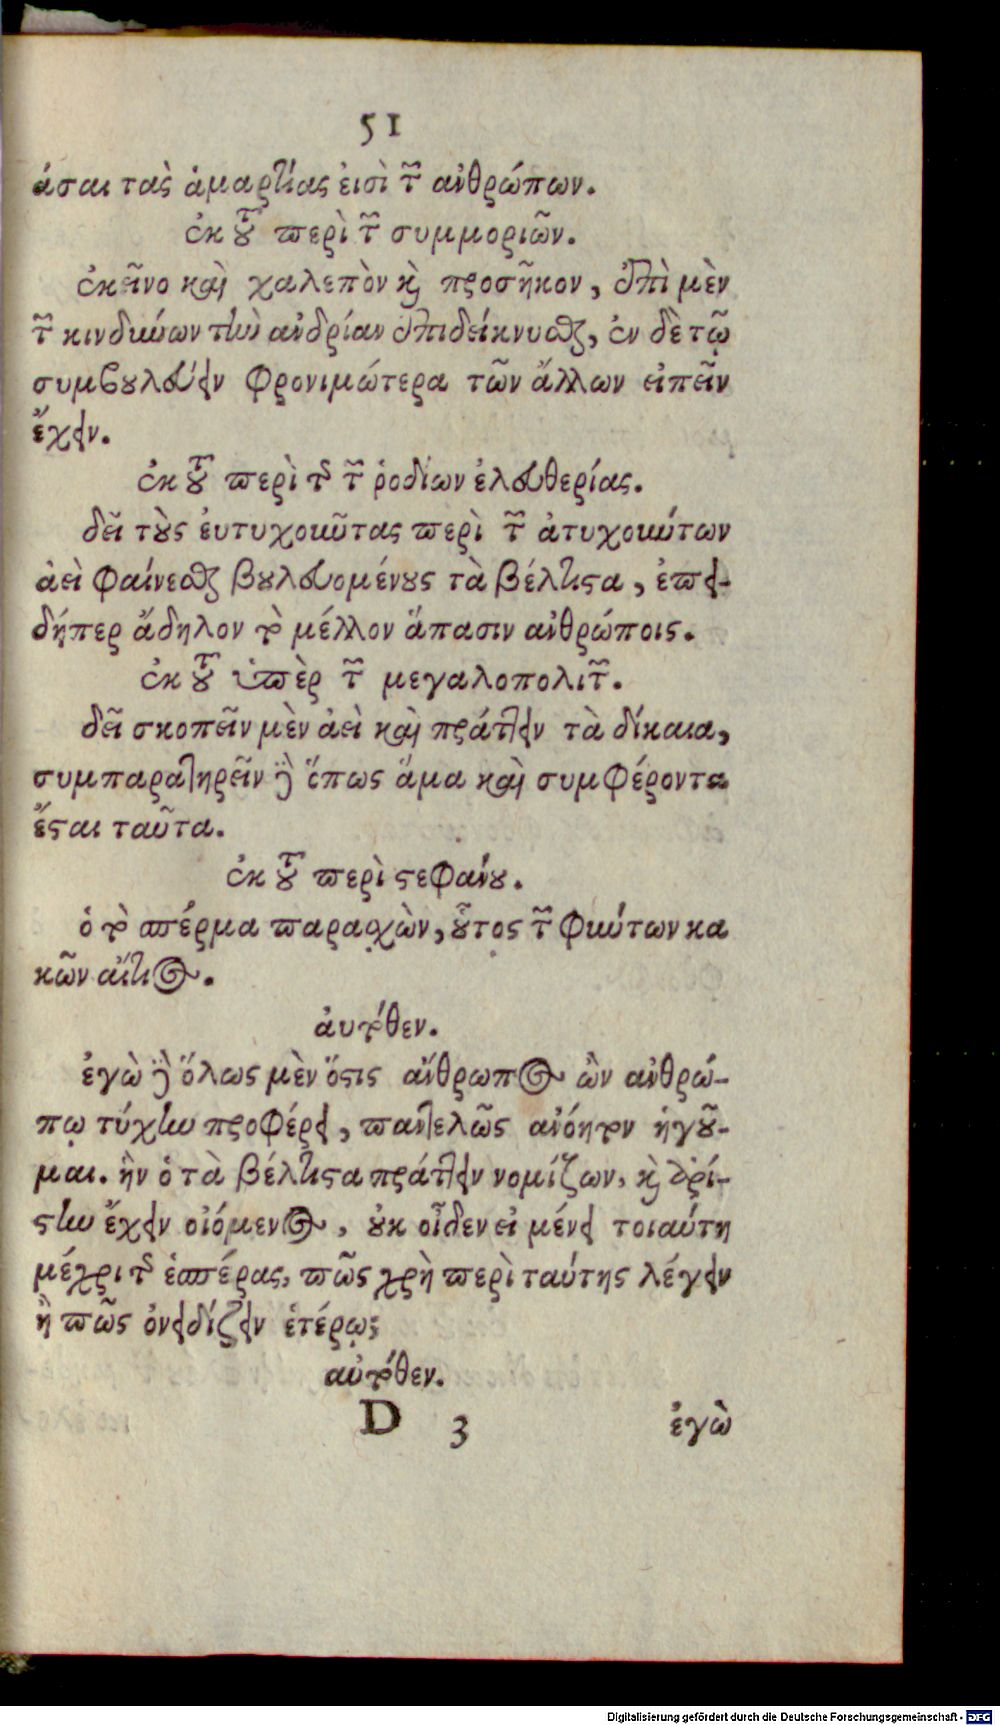 51
άσαι τὰς ἁμαρτίας εἰσὶ τῶν ἀνθρώπων.
ἐκ τοῦ περὶ τῶν συμμοριῶν.
ἐκεῖνο καὶ χαλεπὸν καὶ προσῆκον, ἐπὶ μὲν
τῶν κινδύνων τὴν ἀνδρίαν ἐπιδείκνυσθαι, ἐν δὲ τῷ
συμβουλεύειν φρονιμώτερα τῶν ἄλλων εἰπεῖν
ἔχειν.
ἐκ τοῦ περὶ τῆς τῶν ῥοδίων ἐλευθερίας.
δεῖ τοὺς ἐυτυχοιῦτας περὶ τῶν ἀτυχούντων
ἀεὶ φαίνεσθαι βουλευομένους τὰ βέλτιστα, ἐπει-
δήπερ ἄδηλον τὸ μέλλον ἅπασιν ἀνθρώποις.
ἐκ τοῦ ὑπὲρ τῶν μεγαλοπολιτῶν.
δεῖ σκοπεῖν μὲν ἀεὶ καὶ πράττειν τὰ δίκαια,
συμπαρατηρεῖν δὲ ὅπως ἅμα καὶ συμφέροντα
ἔσται ταῦτα.
ἐκ τοῦ περὶ στεφάνου.
ὁ τὸ σπέρμα παρασχὼν, οὗτος τῶν φύντων κα
κῶν αἴτιος.
ἀυτόθεν.
ἐγὼ δὲ ὅλως μὲν ὅστις ἄνθρωπος ὢν ἀνθρώ-
πῳ τύχην προφέρει, παντελῶς ἀνόητον ἡγοῦ-
μαι. ἣν ὁ τὰ βέλτιστα πράττειν νομίζων, καὶ ἀρί-
στην ἔχειν οἰόμενος, οὐκ οἶδεν εἰ μένει τοιαύτη
μέχρι τῆς ἑσπέρας, πῶς χρὴ περὶ ταύτης λέγειν
ἢ πῶς ὀνειδίζειν ἑτέρῳ;
αὐτόθεν.
D 3 ἐγὼ
Digitalisierung gefördert durch die Deutsche Forschungsgemeinschaft - DFG